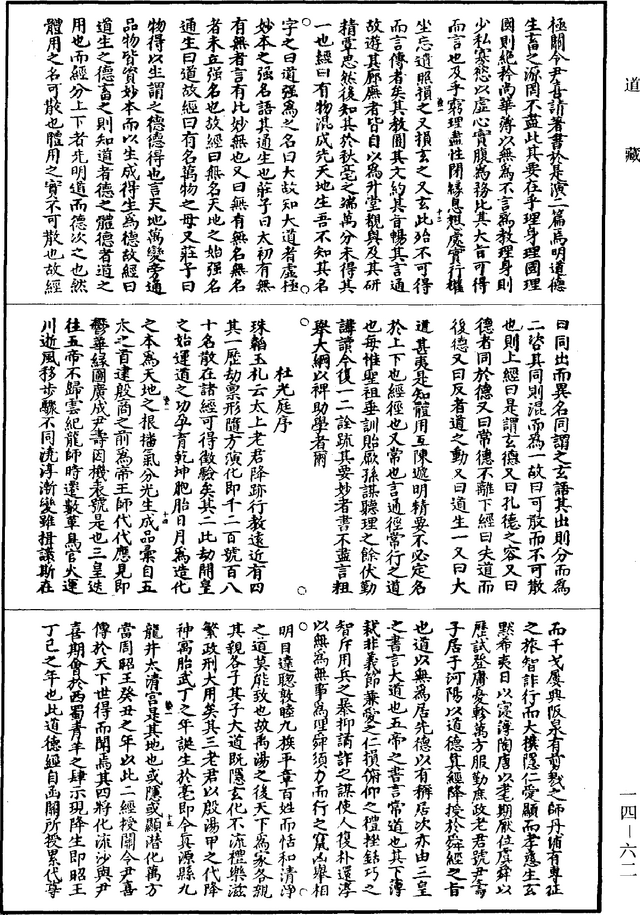 道藏
極關令尹喜請著書於是演二篇焉明道德
生畜之源罔不盡此其要在乎理身理國理
國則絕矜尚華薄以無為不言為教理身則
少私寡慾以虛心實腹為務比其大言可得
而言也及乎窮理盡性閉緣息想處實行權
坐忘遺照損之又損玄之又玄此殆不可得
而言傳者矣其教圓其文約其旨暢其言通
故遊其廊廡者皆自以為升堂覩奧及其研
精覃思然後知其於秋毫之端萬分未得其
一也經曰有物混成先天地生吾不知其名
字之曰道強為之名曰大故知大道者虛極
妙本之強名語其通生也莊子曰太初有無
有無者言有此妙無也又曰無有無名無名
者未立強名也故經曰無名天地之始強名
通生曰道故經曰有名萬物之母又莊子曰
物得以生謂之德德得也言天地萬變旁通
品物皆資妙本而以生成得生為德故經曰
道生之德畜之則知道者德之體德者道之
用也而經分上下者先明道而德次之也然
體用之名可散也體用之實不可散也故經
曰同出而異名同謂之玄語其出則分而為
二咨其同則混而為一故曰可散而不可散
也則上經曰是謂玄德又曰孔德之容又曰
德者同於德又曰常德不離下經曰失道而
後德又曰反者道之動又曰道生一又曰大
道甚夷是知體用互陳遞明精要不必定名
於上下也經徑也又常也言通徑常行之道
也每惟聖祖垂訓貽厥孫謀聽理之餘伏勤
講讀今復一二詮疏其要妙者書不盡言粗
舉大綱以裨助學者爾
杜光庭序
珠韜玉札云太上老君降跡行教遠近有四
其一歷劫稟形隨方演化即千二百號百八
十名散在諸經可得徵驗矣其二此劫開皇
之始運道之功孕育乾坤胞胎日月為造化
之本為天地之根播氣分光生成品彙自五
太之首逮殷商之前為帝王師代代應見即
鬱華綠圖廣成尹壽因機表號是也三皇迭
往五帝不歸雲紀龍師時遷數革鳥官火運
川逝風移步驟不同澆淳漸變雖揖讓斯在
而干戈屢興阪泉有前戮之師丹浦有專征
之旅智詐行而大樸隱仁愛顯而孝慈生玄
默希夷日以寖薄陶唐以耄期厭位虞舜以
歷試登庸憂軫萬方服勤庶政老君號尹壽
子居于河陽以道德真經降授於舜經之旨
也道以無為居先德以有稱居次亦由三皇
之書言大道也五帝之書言常道也其下薄
裁非義節兼愛之仁損俯仰之禮挫銛巧之
智斥用兵之暴抑譎詐之謀使人復朴還淳
以無為無事為理舜須力而行之竄凶舉相
明目達聰敦睦九族平章百姓而恬和清淨
之道莫能致也故禹湯之後天下為家各親
其親各子其子大道既隱玄化不流禮樂滋
繁政刑大用矣其三老君以殷湯甲之代降
神寓胎武丁之年誕生於亳即今真源縣九
龍井太清宮是其地也或隱或顯潛化萬方
當周昭王癸丑之年以此二經授關令尹喜
傳於天下世得而聞焉其四將化流沙與尹
喜期會於西蜀青羊之肆示現降生即昭王
丁巳之年也此道德經自函關所授累代尊
一四—六二